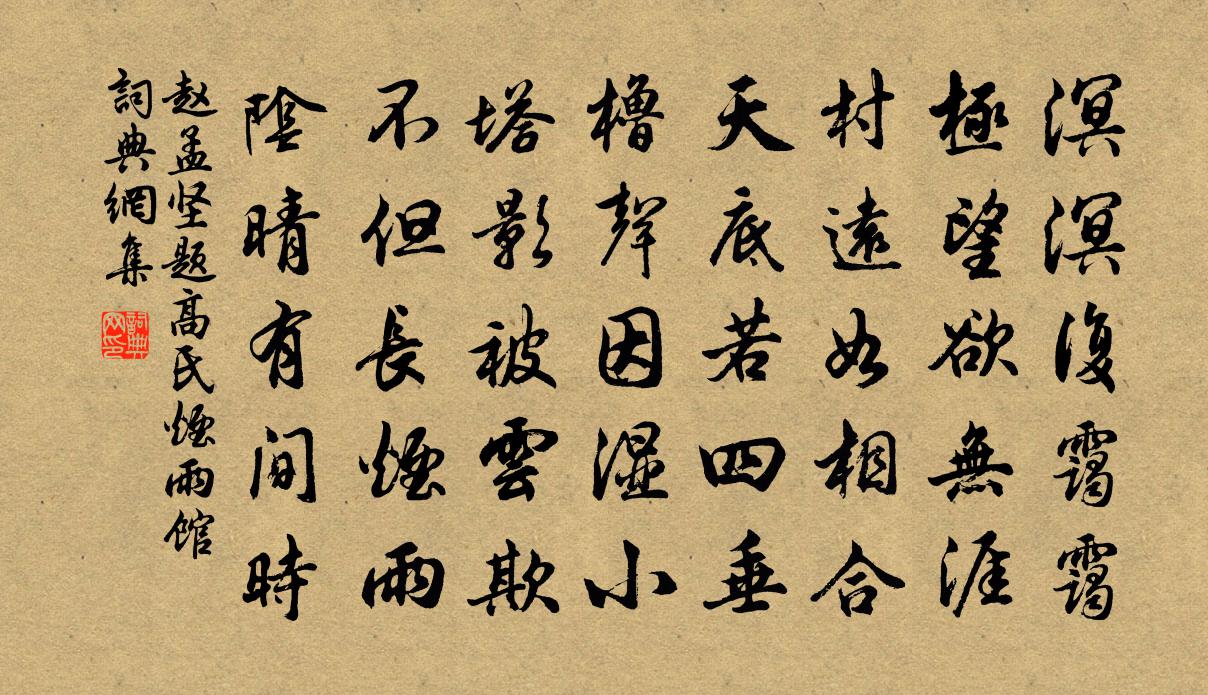 溟溟復靄靄
極望欲無涯
村遠如相合
天底若四垂
櫓聲因濕小
塔影被雲欺
不但長煙雨
陰晴有間時
赵孟坚题高氏煙雨馆
詞典網集
詞典网印